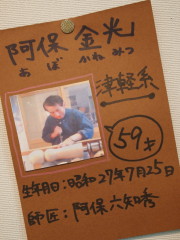 阿保 金光
あぼ かねみつ
津軽系
59才
生年月日:昭和27年7月25日
師匠:阿保六知秀